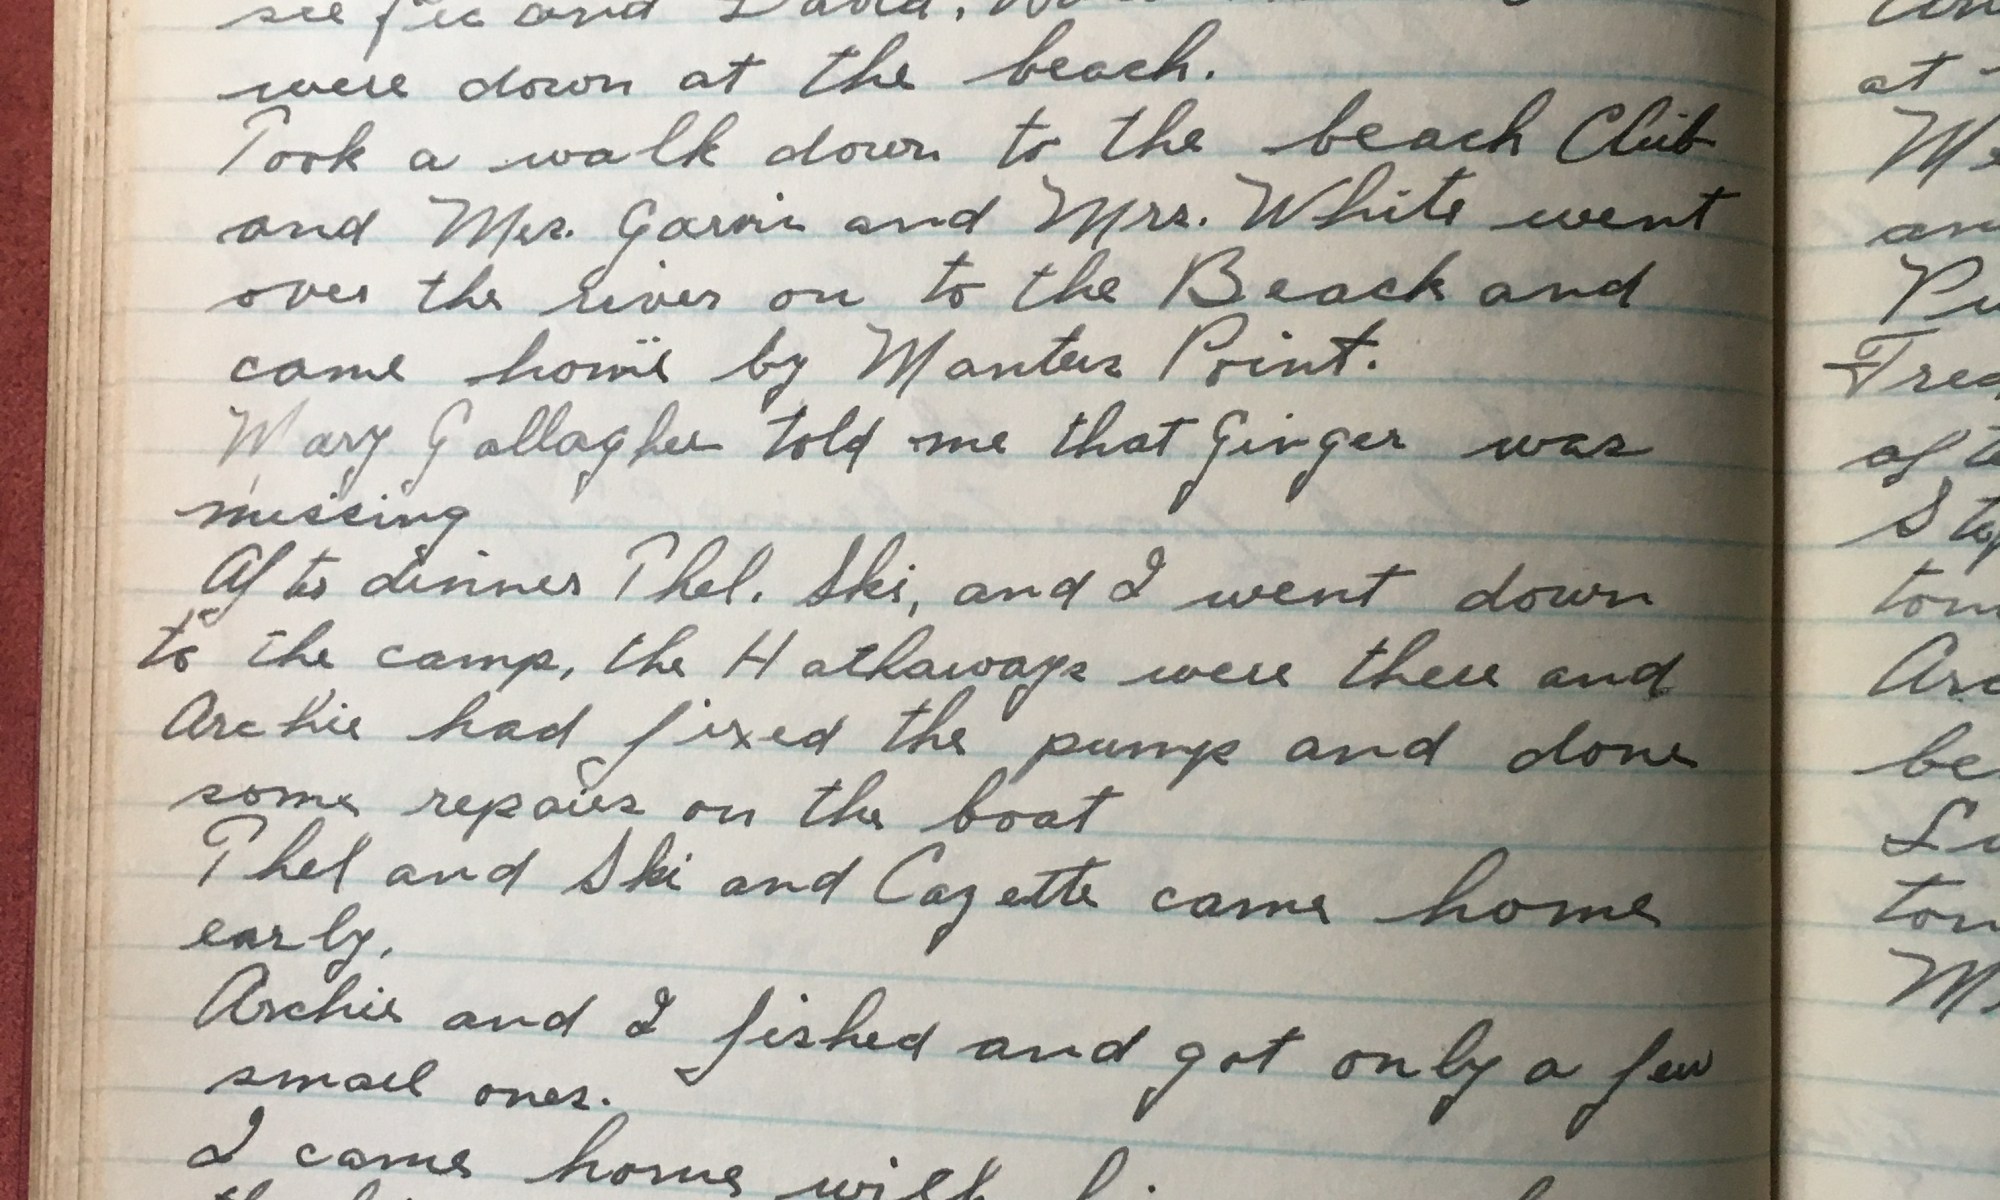 see and David,
were down at the beach.
Took a walk down to the beach Club
and Mrs. Garvin and Mrs. White went
over the river on to the Beach and
came home by Manters Point.
Mary Gallagher told me that Ginger was
missing
After dinner Thel. Ski, and I went down
to the camp, the Hathaways were there and
Archie had fixed the pump and done
some repairs on the boat
Thel and Ski and Cazette came home
early.
Archie and I fished and got only a few
small ones.
I came home with
at